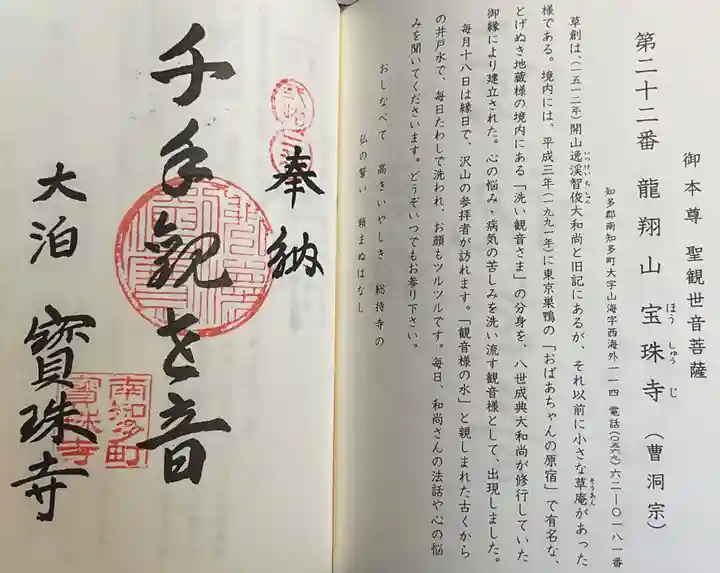 第二十二番 龍翔山 宝珠寺 (曹洞宗)
ほう しゅう じ
御本尊 聖観世音菩薩
知多郡南知多町大字山海字西海外一一四 電話(〇五六九)六二―〇一八一番
草創は、(一五一二年)開山逸渓智俊大和尚と旧記にあるが、それ以前に小さな草庵があった
いっけいちしゅん
そうあん
様である。境内には、平成三年(一九九一年)に東京巣鴨の「おばあちゃんの原宿」で有名な、
とげぬき地蔵様の境内にある「洗い観音さま」の分身を、八世成典大和尚が修行していた
御縁により建立された。心の悩み・病気の苦しみを洗い流す観音様として、出現しました。
毎月十八日は縁日で、沢山の参拝者が訪れます。「観音様の水」と親しまれた古くから
の井戸水で、毎日たわしで洗われ、お顔もツルツルです。毎日、和尚さんの法話や心の悩
みを聞いてくださいます。どうぞいつでもお参り下さい。
おしなべて 高きいやしき 総持寺の
仏の誓い 頼まぬはなし
奉納
千手観世音
大泊 寳珠寺
南知多町
寳珠寺